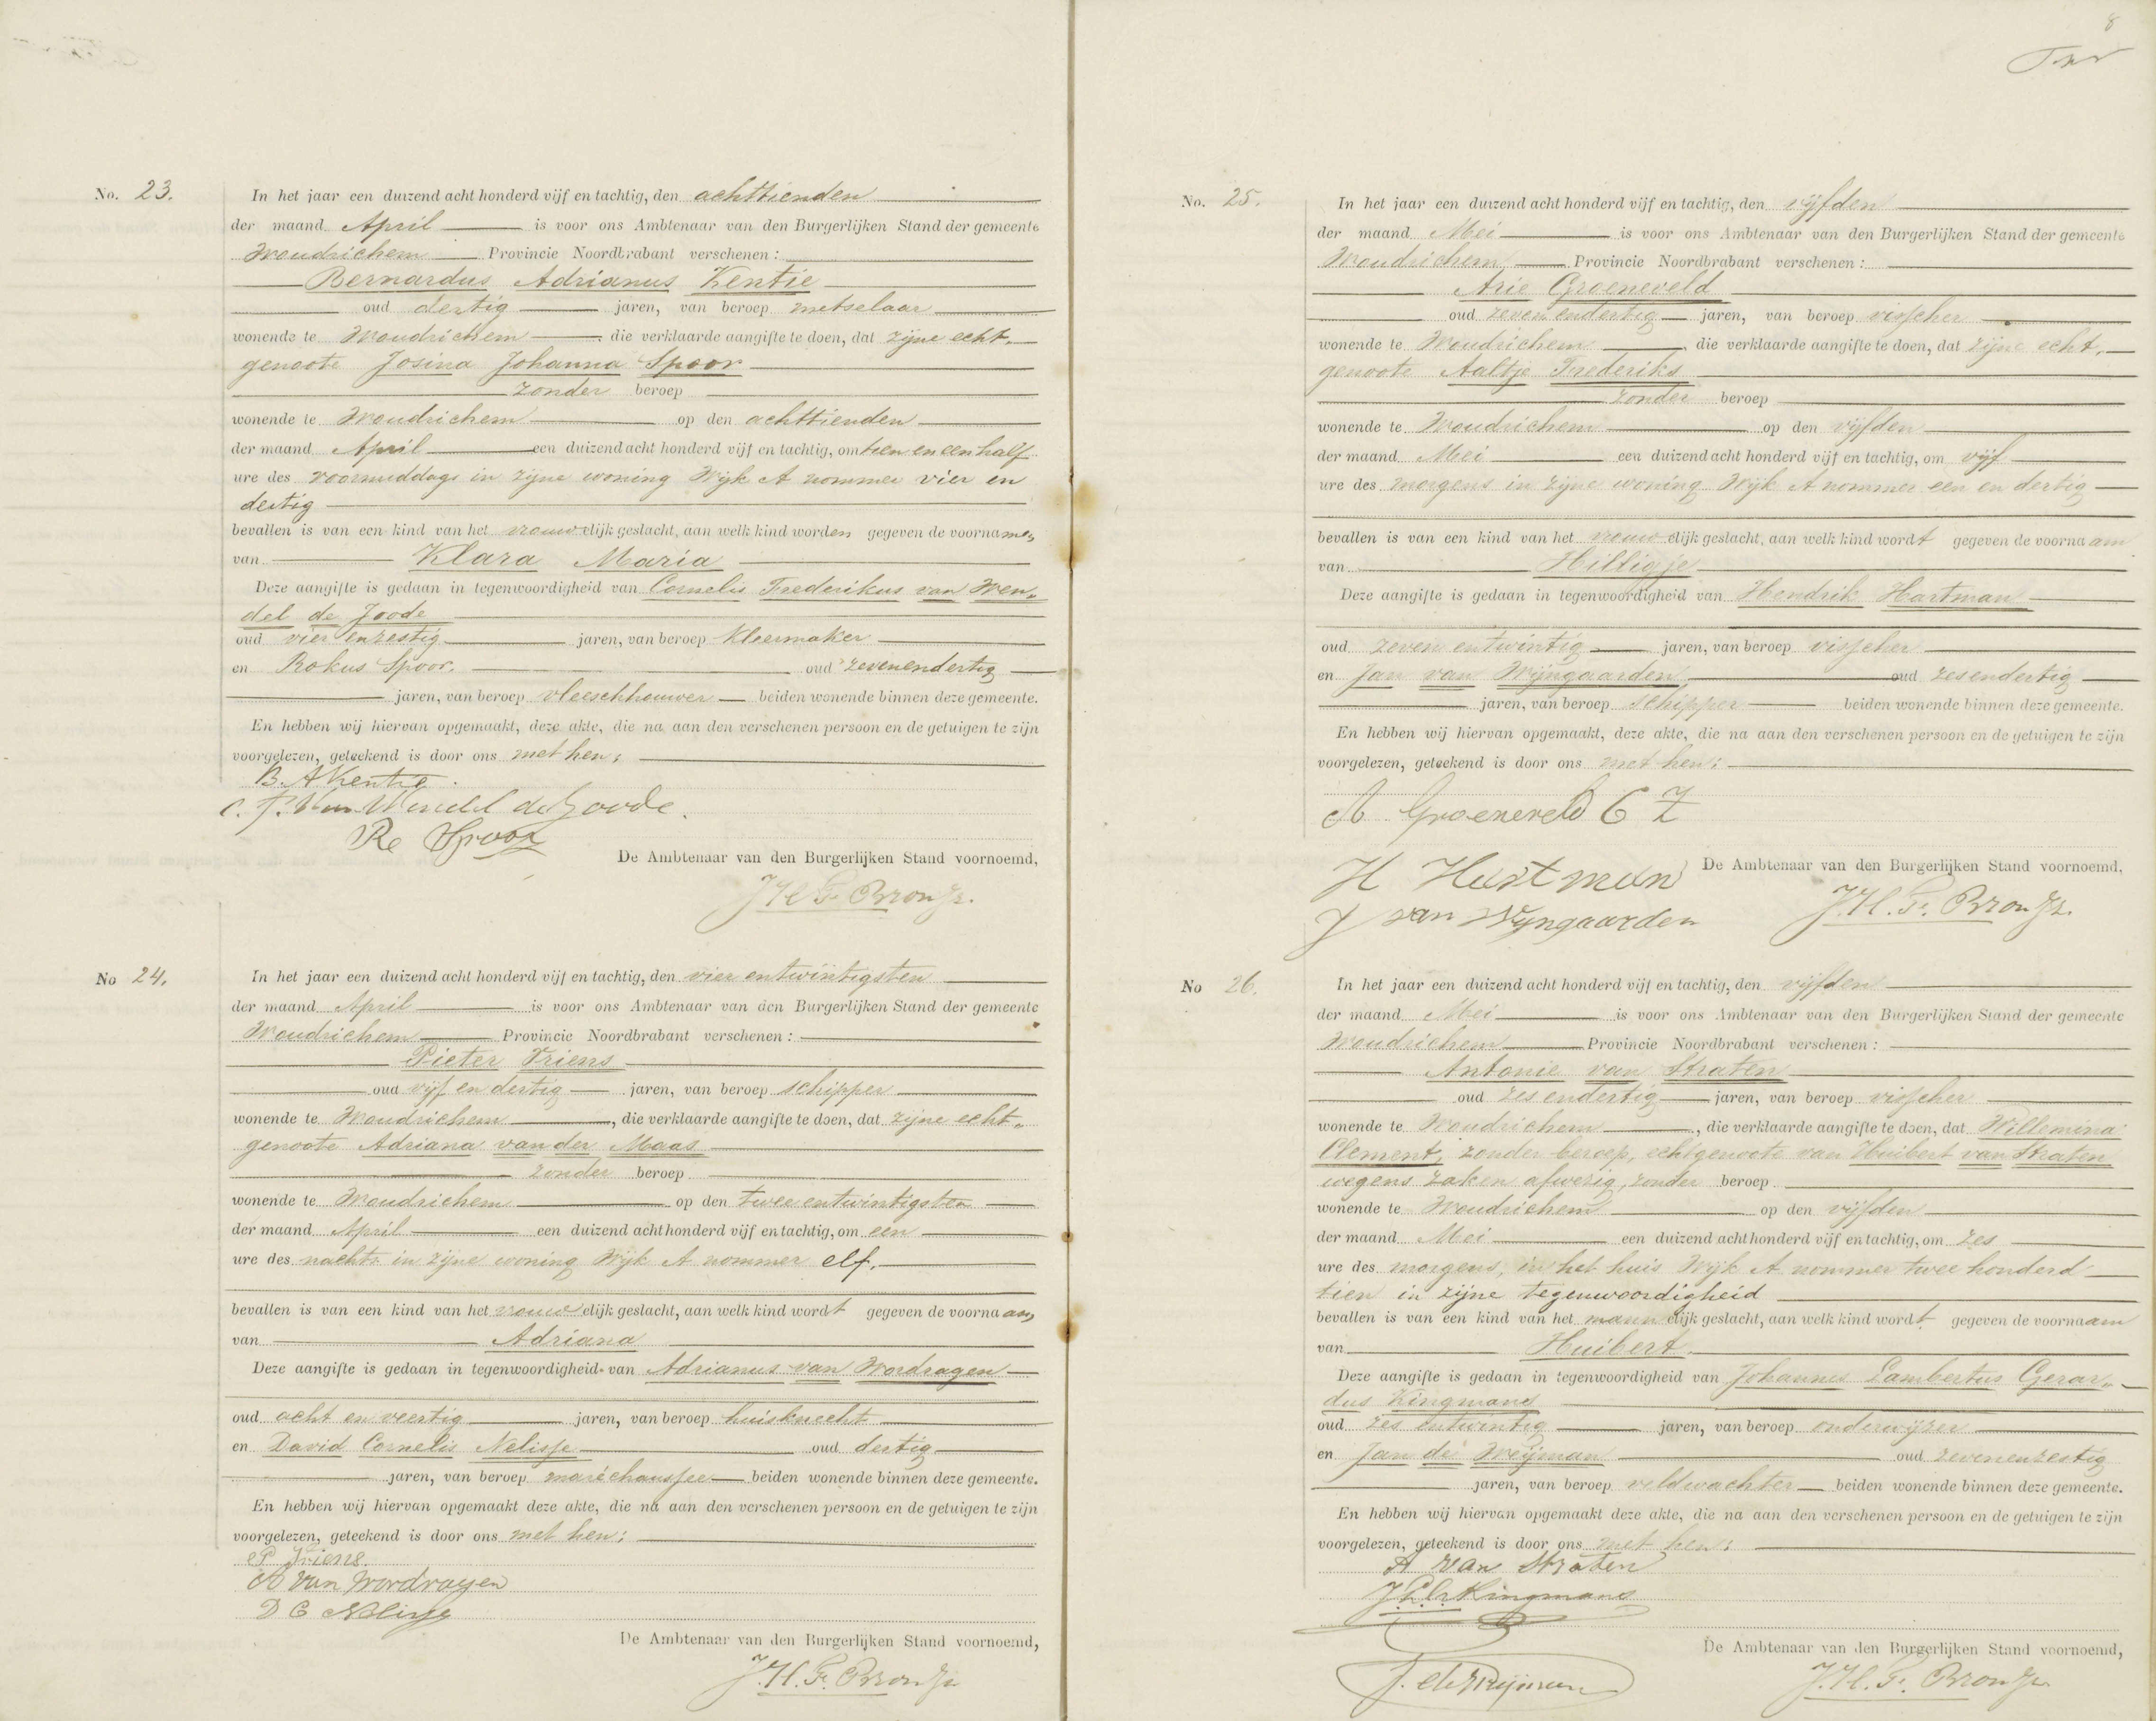 No. 23.
In het jaar een duizend acht honderd vijf en tachtig, den achttienden
der maand April is voor ons Ambtenaar van den Burgerlijken Stand der gemeente
Woudrichem Provincie Noordbrabant verschenen:
Bernardus Adrianus Kentie
oud dertig jaren, van beroep metselaar
wonende te Woudrichem die verklaarde aangifte te doen, dat zijne echt„
genoote Josina Johanna Spoor
zonder beroep
wonende te Woudrichem op den achttienden
der maand April een duizend acht honderd vijf en tachtig, om tien en een half
ure des voormiddags in zijne woning Wijk A nommer vier en
dertig
bevallen is van een kind van het vrouwelijk geslacht, aan welk kind worden gegeven de voornamen
van Klara Maria
Deze aangifte is gedaan in tegenwoordigheid van Cornelis Frederikus van Wen„
del de Joode
oud vier en zestig jaren, van beroep kleermaker
en Rokus Spoor. oud zevenendertig
jaren, van beroep vleeschhouwer beiden wonende binnen deze gemeente.
En hebben wij hiervan opgemaakt, deze akte, die na aan den verschenen persoon en de getuigen te zijn
voorgelezen, geteekend is door ons met hen;
B. A Kentie.
C. F. Van Wendel de Joode.
Re Spoor
De Ambtenaar van den Burgerlijken Stand voornoemd,
J.H.F. Bron Jz.
No 24.
In het jaar een duizend acht honderd vijf en tachtig, den vier entwintigsten
der maand April is voor ons Ambtenaar van den Burgerlijken Stand der gemeente
Woudrichem Provincie Noordbrabant verschenen:
Pieter Friens
oud vijf en dertig jaren, van beroep schipper
wonende te Woudrichem, die verklaarde aangifte te doen, dat zijne echt„
genoote Adriana van der Maas
zonder beroep
wonende te Woudrichem op den twee entwintigsten
der maand April een duizend acht honderd vijf en tachtig, om een
ure des nachts in zijne woning Wijk A nommer elf.
bevallen is van een kind van het vrouwelijk geslacht, aan welk kind wordt gegeven de voornaam
van Adriana
Deze aangifte is gedaan in tegenwoordigheid van Adrianus van Wordragen
oud acht en veertig jaren, van beroep huisknecht
en David Cornelis Nelisse oud dertig
jaren, van beroep maréchaussee beiden wonende binnen deze gemeente.
En hebben wij hiervan opgemaakt deze akte, die na aan den verschenen persoon en de getuigen te zijn
voorgelezen, geteekend is door ons met hen;
P Friens.
A van Wordragen
D C Nelisse
De Ambtenaar van den Burgerlijken Stand voornoemd,
J.H.F. Bron Jz
8
No. 25.
In het jaar een duizend acht honderd vijf en tachtig, den vijfden
der maand Mei is voor ons Ambtenaar van den Burgerlijken Stand der gemeente
Woudrichem Provincie Noordbrabant verschenen:
Arie Groeneveld
oud zeven endertig jaren, van beroep visscher
wonende te Woudrichem, die verklaarde aangifte te doen, dat zijne echt„
genoote Aaltje Frederiks
zonder beroep
wonende te Woudrichem op den vijfden
der maand Mei een duizend acht honderd vijf en tachtig, om vijf
ure des morgens in zijne woning Wijk A nommer een en dertig
bevallen is van een kind van het vrouwelijk geslacht, aan welk kind wordt gegeven de voornaam
van Hilligje
Deze aangifte is gedaan in tegenwoordigheid van Hendrik Hartman
oud zeven entwintig jaren, van beroep visscher
en Jan van Wijngaarden, oud zesendertig
jaren, van beroep schipper beiden wonende binnen deze gemeente.
En hebben wij hiervan opgemaakt, deze akte, die na aan den verschenen persoon en de getuigen te zijn
voorgelezen, geteekend is door ons met hen:
A Groeneveld C Z
H Hartman
J van Wyngaarden
De Ambtenaar van den Burgerlijken Stand voornoemd,
J.H.F. Bron Jz.
No 26.
In het jaar een duizend acht honderd vijf en tachtig, den vijfden
der maand Mei is voor ons Ambtenaar van den Burgerlijken Stand der gemeente
Woudrichem Provincie Noordbrabant verschenen:
Antonie van Straten
oud zes endertig jaren, van beroep visscher
wonende te Woudrichem, die verklaarde aangifte te doen, dat Willemina
Clement, zonder beroep, echtgenoote van Huibert van Straten
wegens zaken afwezig, zonder beroep
wonende te Woudrichem op den vijfden
der maand Mei een duizend acht honderd vijf en tachtig, om zes
ure des morgens, in het huis Wijk A nommer twee honderd
tien in zijne tegenwoordigheid
bevallen is van een kind van het mannelijk geslacht, aan welk kind wordt gegeven de voornaam
van Huibert.
Deze aangifte is gedaan in tegenwoordigheid van Johannes Lambertus Gerar„
dus Kingmans
oud zes entwintig jaren, van beroep onderwijzer
en Jan de Weijman oud zevenenzestig
jaren, van beroep veldwachter beiden wonende binnen deze gemeente.
En hebben wij hiervan opgemaakt deze akte, die na aan den verschenen persoon en de getuigen te zijn
voorgelezen, geteekend is door ons met hen;
A van Straten
J.L.G. Kingmans
J. de Weijman
De Ambtenaar van den Burgerlijken Stand voornoemd,
J.H.F. Bron Jz.